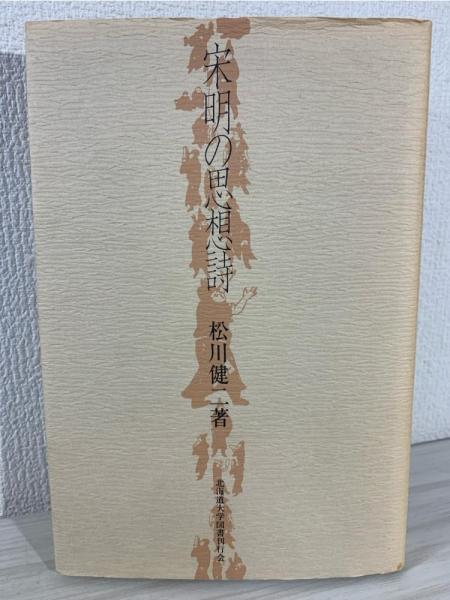 宋明の思想詩
松川健二著
北海道大学図書刊行会